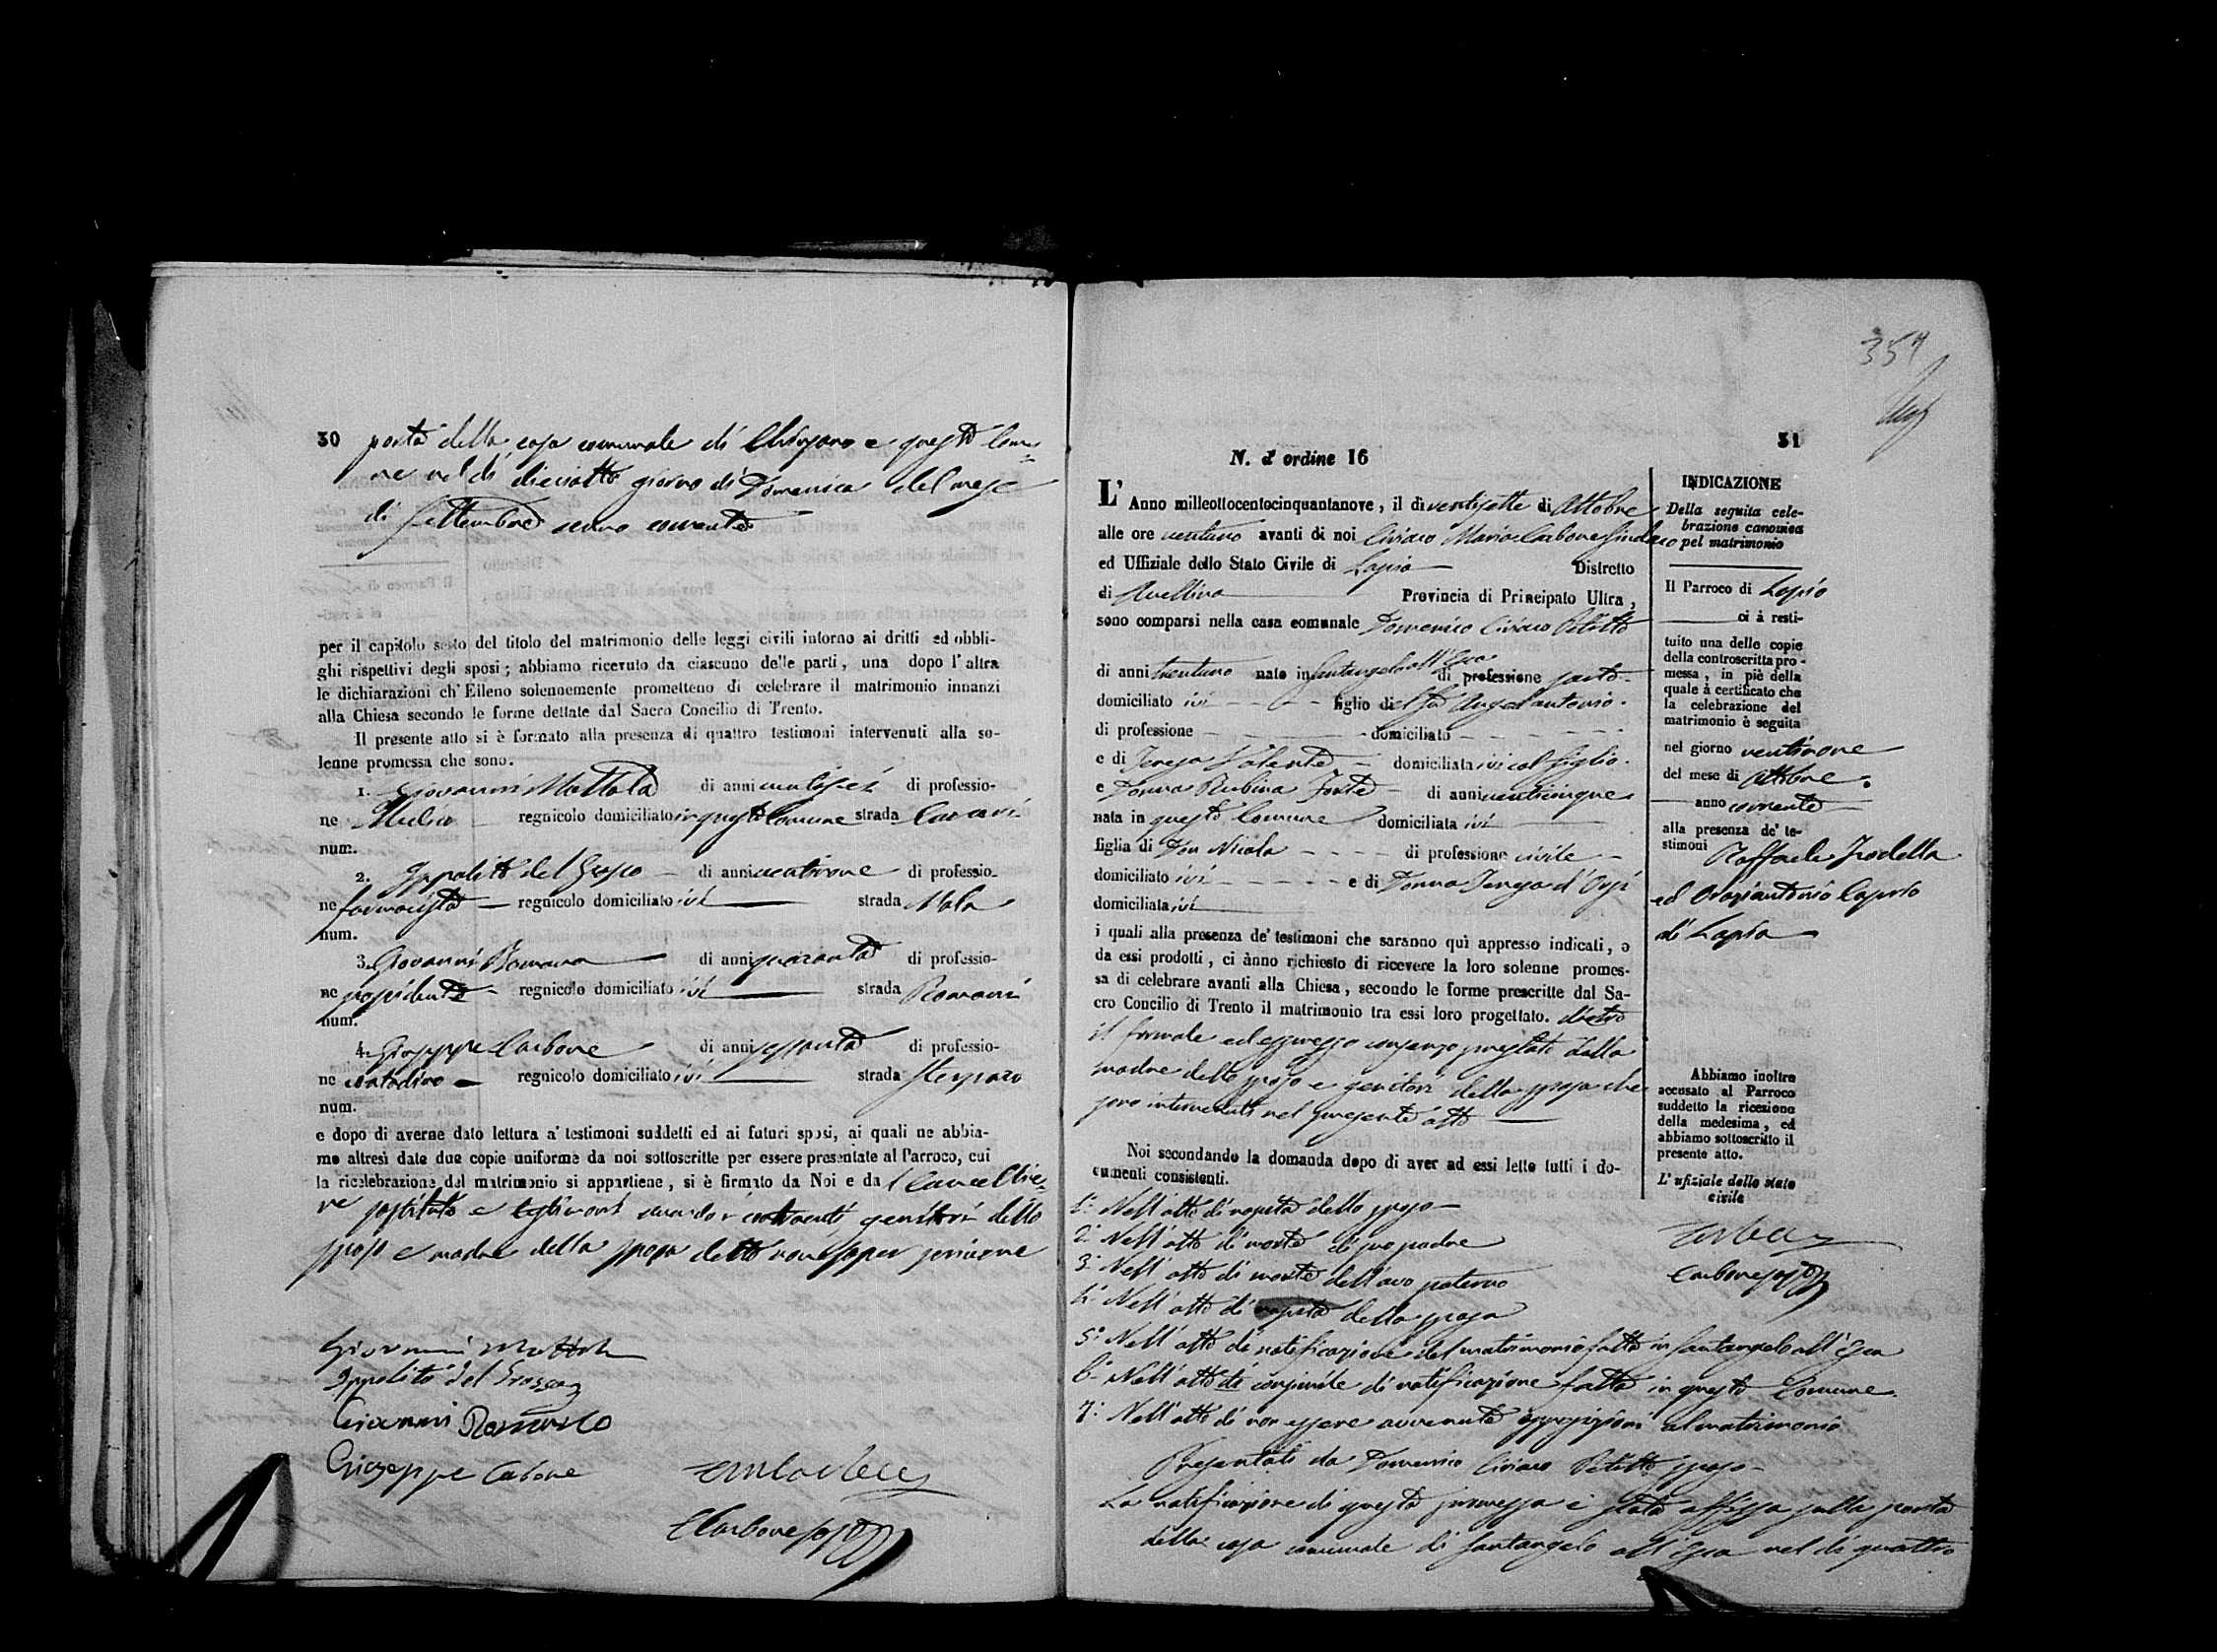 30 porta della casa comunale di Chiusano e questo Comu=
ne nel dì dieciotto giorno di Domenica del mese
di Settembre anno corrente
per il capitolo sesto del titolo del matrimonio delle leggi civili intorno ai dritti ed obbli-
ghi rispettivi degli sposi; abbiamo ricevuto da ciascuno delle parti, una dopo l'altra
le dichiarazioni ch'Elleno solennemente promettono di celebrare il matrimonio innanzi
alla Chiesa secondo le forme dettate dal Sacro Concilio di Trento.
Il presente atto si è formato alla presenza di quattro testimoni intervenuti alla so-
lenne promessa che sono.
1. Giovanni Mottola di anni ventisei di professio-
ne Medico regnicolo domiciliato in questo Comune strada
num.
2. Ippolito del Grosso di anni ventinove di professio-
ne farmacista regnicolo domiciliato ivi strada
num.
3. Giovanni Romano di anni quaranta di professio-
ne possidente regnicolo domiciliato ivi strada Romani
num.
4. Giuseppe Carbone di anni sessanta di professio-
ne contadino regnicolo domiciliato ivi strada
num.
e dopo di averne dato lettura a' testimoni suddetti ed ai futuri sposi, ai quali ne abbia-
mo altresì date due copie uniforme da noi sottoscritte per essere presentate al Parroco, cui
la ricelebrazione del matrimonio si appartiene, si è firmato da Noi e dal Cancellie=
re sostituto e testimoni avendo i contraenti genitori dello
sposo e madre della sposa detto non saper scrivere
Giovanni Mottola
Ippolito del Grosso
Giovanni Romano
Giuseppe Carbone
Carbone
357
31
N. d'ordine 16
L' Anno milleottocentocinquantanove, il dì ventisette di Ottobre
alle ore ventuno avanti di noi Ciriaco Maria Carbone Sindaco
ed Uffiziale dello Stato Civile di Lapio Distretto
di Avellino Provincia di Principato Ultra,
sono comparsi nella casa comunale Domenico Ciriaco Petitto
di anni trentuno nato in Santangelo all'Esca di professione sarto
domiciliato ivi figlio del fu Angelantonio
di professione domiciliato
e di Teresa Volante domiciliata ivi col figlio
e Donna Rubina Forte di anni venticinque
nata in questo Comune domiciliata ivi
figlia di Don Nicola di professione civile
domiciliato ivi e di Donna Teresa d'Orsi
domiciliata ivi
i quali alla presenza de' testimoni che saranno quì appresso indicati, e
da essi prodotti, ci ànno richiesto di ricevere la loro solenne promes-
sa di celebrare avanti alla Chiesa, secondo le forme prescritte dal Sa-
cro Concilio di Trento il matrimonio tra essi loro progettato. dietro
il formale ed espresso consenso prestato dalla
madre dello sposo e genitori della sposa che
sono intervenuti nel presente atto
Noi secondando la domanda dopo di aver ad essi letto tutti i do-
cumenti consistenti.
1º Nell'atto di nascita dello sposo
2º Nell'atto di morte di suo padre
3º Nell'atto di morte dell'avo paterno
4º Nell'atto di nascita della sposa
5º Nell'atto di notificazione del matrimonio fatto in Santangelo all'Esca
6º Nell'atto di consimile di notificazione fatta in questo Comune
7º Nell'atto di non essere avvenute opposizioni al matrimonio
Presentati da Domenico Ciriaco Petitto sposo
La notificazione di questa promessa è stata affissa sulla porta
della casa comunale di Santangelo all'Esca nel dì quattro
INDICAZIONE
Della seguita cele-
brazione canonica
pel matrimonio
Il Parroco di Lapio
ci à resti-
tuito una delle copie
della controscritta pro-
messa, in piè della
quale à certificato che
la celebrazione del
matrimonio è seguita
nel giorno ventinove
del mese di Ottobre
anno corrente
alla presenza de' te-
stimoni Raffaele Irodella
ed Oraziantonio Caputo
di Lapio
Abbiamo inoltre
accusato al Parroco
suddetto la ricezione
della medesima, ed
abbiamo sottoscritto il
presente atto.
L'ufiziale dello stato
civile
Carbone